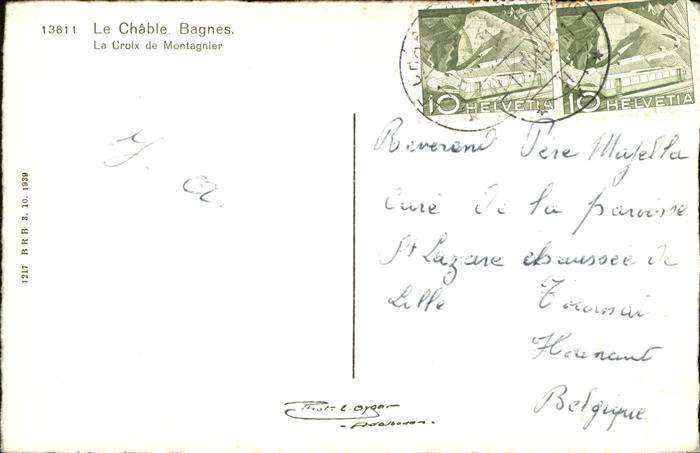 13811 Le Châble. Bagnes.
La Croix de Montagnier
10 HELVETIA
10 HELVETIA
Reverend Père Majella
curé de la paroisse
St Lazare chaussée de
Lille Tournai
Hainaut
Belgique
1217 B R B 3. 10. 1939
Phot. E. Gyger
- Adelboden -